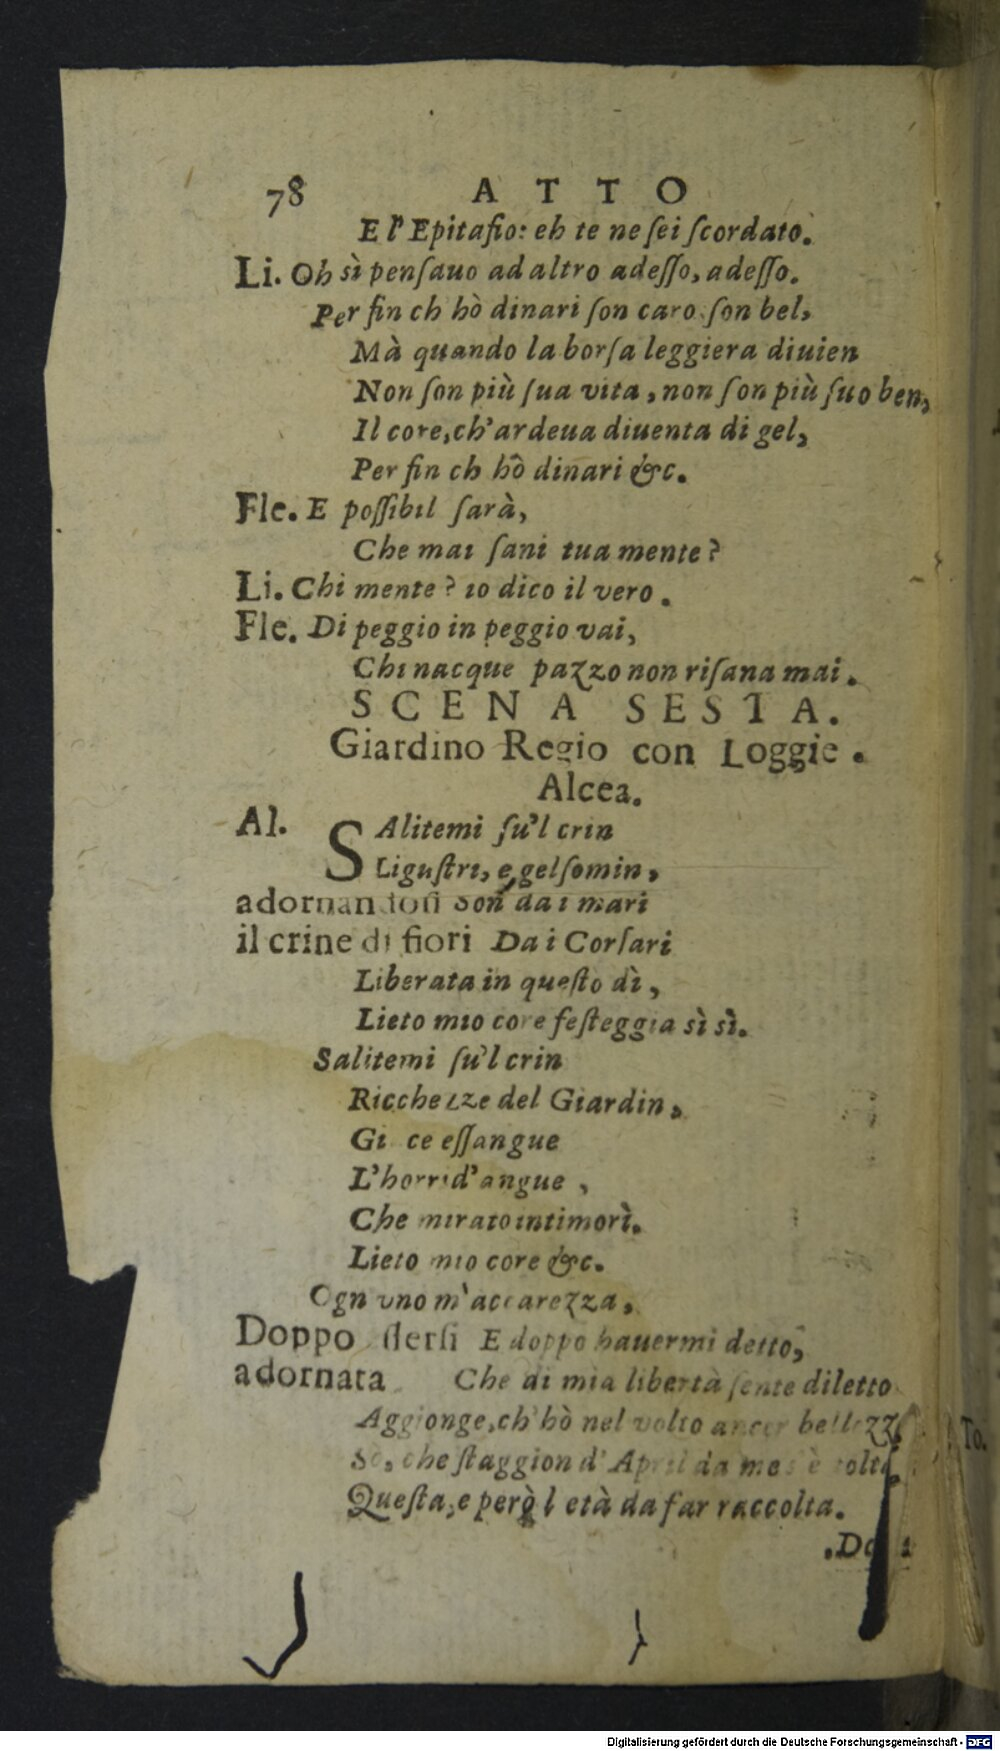 78 ATTO
E l'Epitafio: eh te ne ſei ſcordato.
Li. Oh sì penſauo ad altro adeſſo, adeſſo.
Per fin ch hò dinari ſon caro ſon bel,
Mà quando la borſa leggiera diuien
Non ſon più ſua vita, non ſon più ſuo ben,
Il core, ch'ardeua diuenta di gel,
Per fin ch hò dinari &c.
Fle. E poſſibil ſarà,
Che mai ſani tua mente?
Li. Chi mente? io dico il vero.
Fle. Di peggio in peggio vai,
Chi nacque pazzo non riſana mai.
SCENA SESTA.
Giardino Regio con Loggie.
Alcea.
Al. SAlitemi ſu'l crin
Liguſtri, e gelſomin,
adornandoſi Son da i mari
il crine di fiori Da i Corſari
Liberata in queſto dì,
Lieto mio core feſteggia sì sì.
Salitemi ſu'l crin
Ricchezze del Giardin,
Gi ce eſſangue
L'horrid'angue,
Che mirato intimorì.
Lieto mio core &c.
Ogn vno m'accarezza,
Doppo ſterſi E doppo hauermi detto,
adornata Che di mia libertà ſente diletto
Aggionge, ch'hò nel volto ancor bellezz
Sò, che ſtaggion d'April da me s'è tolta
Queſta, e però l età da far raccolta.
To.
Digitalisierung gefördert durch die Deutsche Forschungsgemeinschaft - DFG